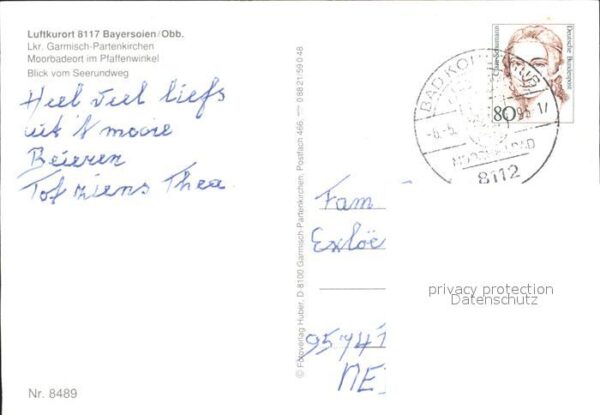 Luftkurort 8117 Bayersoien/Obb.
Lkr. Garmisch-Partenkirchen
Moorbadeort im Pfaffenwinkel
Blick vom Seerundweg
Heel veel liefs
uit 't mooie
Beieren
Tot ziens Thea
Nr. 8489
© Fotoverlag Huber, D-8100 Garmisch-Partenkirchen, Postfach 466,
Deutsche Bundespost
80
BAD KO
8112
Fam
Exloë
9574
NE
privacy protection
Datenschutz